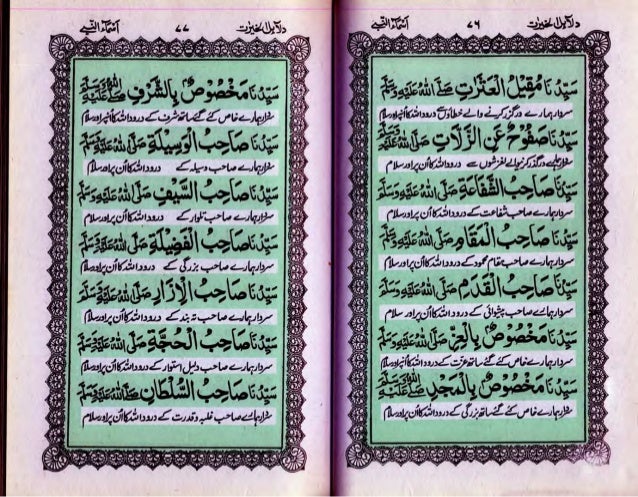 دلائل الخیرات ٧٦ اسماء النبی
سَيِّدُنَا مُقِيْلُ الْعَثَرَاتِ صَلَّى اللهُ عَلَيْهِ وَسَلَّمَ
سردار ہمارے درگذر کرنے والے خطاؤں سے درود اللہ کا اُنپر اور سلام
سَيِّدُنَا صَفُوْحٌ عَنِ الزَّلَّاتِ صَلَّى اللهُ عَلَيْهِ وَسَلَّمَ
درگذر کرنیوالے لغزشوں سے درود اللہ کا اُن پر اور سلام
سَيِّدُنَا صَاحِبُ الشَّفَاعَةِ صَلَّى اللهُ عَلَيْهِ وَسَلَّمَ
سردار ہمارے صاحب شفاعت کے درود اللہ کا اُن پر اور سلام
سَيِّدُنَا صَاحِبُ الْمَقَامِ صَلَّى اللهُ عَلَيْهِ وَسَلَّمَ
سردار ہمارے صاحب مقام محمود کے درود اللہ کا اُن پر اور سلام
سَيِّدُنَا صَاحِبُ الْقَدَمِ صَلَّى اللهُ عَلَيْهِ وَسَلَّمَ
سردار ہمارے صاحب پیشوائی کے درود اللہ کا اُن پر اور سلام
سَيِّدُنَا مَخْصُوْصٌ بِالْعِزِّ صَلَّى اللهُ عَلَيْهِ وَسَلَّمَ
سردار ہمارے خاص کئے گئے ساتھ عزت کے درود اللہ کا اُنپر اور سلام
سَيِّدُنَا مَخْصُوْصٌ بِالْمَجْدِ صَلَّى اللهُ عَلَيْهِ وَسَلَّمَ
سردار ہمارے خاص کئے گئے ساتھ بزرگی کے درود اللہ کا اُن پر اور سلام
دلائل الخیرات ٧٧ اسماء النبی
سَيِّدُنَا مَخْصُوْصٌ بِالشَّرَفِ صَلَّى اللهُ عَلَيْهِ وَسَلَّمَ
سردار ہمارے خاص کئے گئے ساتھ شرف کے درود اللہ کا اُنپر اور سلام
سَيِّدُنَا صَاحِبُ الْوَسِيْلَةِ صَلَّى اللهُ عَلَيْهِ وَسَلَّمَ
سردار ہمارے صاحب وسیلہ کے درود اللہ کا اُن پر اور سلام
سَيِّدُنَا صَاحِبُ السَّيْفِ صَلَّى اللهُ عَلَيْهِ وَسَلَّمَ
سردار ہمارے صاحب تلوار کے درود اللہ کا اُن پر اور سلام
سَيِّدُنَا صَاحِبُ الْفَضِيْلَةِ صَلَّى اللهُ عَلَيْهِ وَسَلَّمَ
سردار ہمارے صاحب بزرگی کے درود اللہ کا اُن پر اور سلام
سَيِّدُنَا صَاحِبُ الْاِزَارِ صَلَّى اللهُ عَلَيْهِ وَسَلَّمَ
سردار ہمارے صاحب تہ بند کے درود اللہ کا اُن پر اور سلام
سَيِّدُنَا صَاحِبُ الْحُجَّةِ صَلَّى اللهُ عَلَيْهِ وَسَلَّمَ
سردار ہمارے صاحب دلیل استوار کے درود اللہ کا اُن پر اور سلام
سَيِّدُنَا صَاحِبُ السُّلْطَانِ صَلَّى اللهُ عَلَيْهِ وَسَلَّمَ
سردار ہمارے صاحب غلبہ و قدرت کے درود اللہ کا اُن پر اور سلام